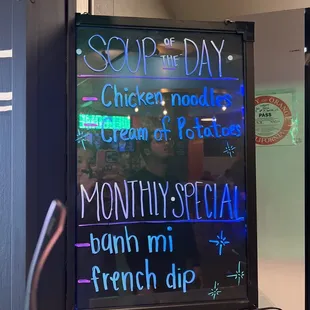 SOUP OF THE DAY
- Chicken noodles
- Cream of Potatoes
MONTHLY·SPECIAL
- banh mi
- french dip
PASS